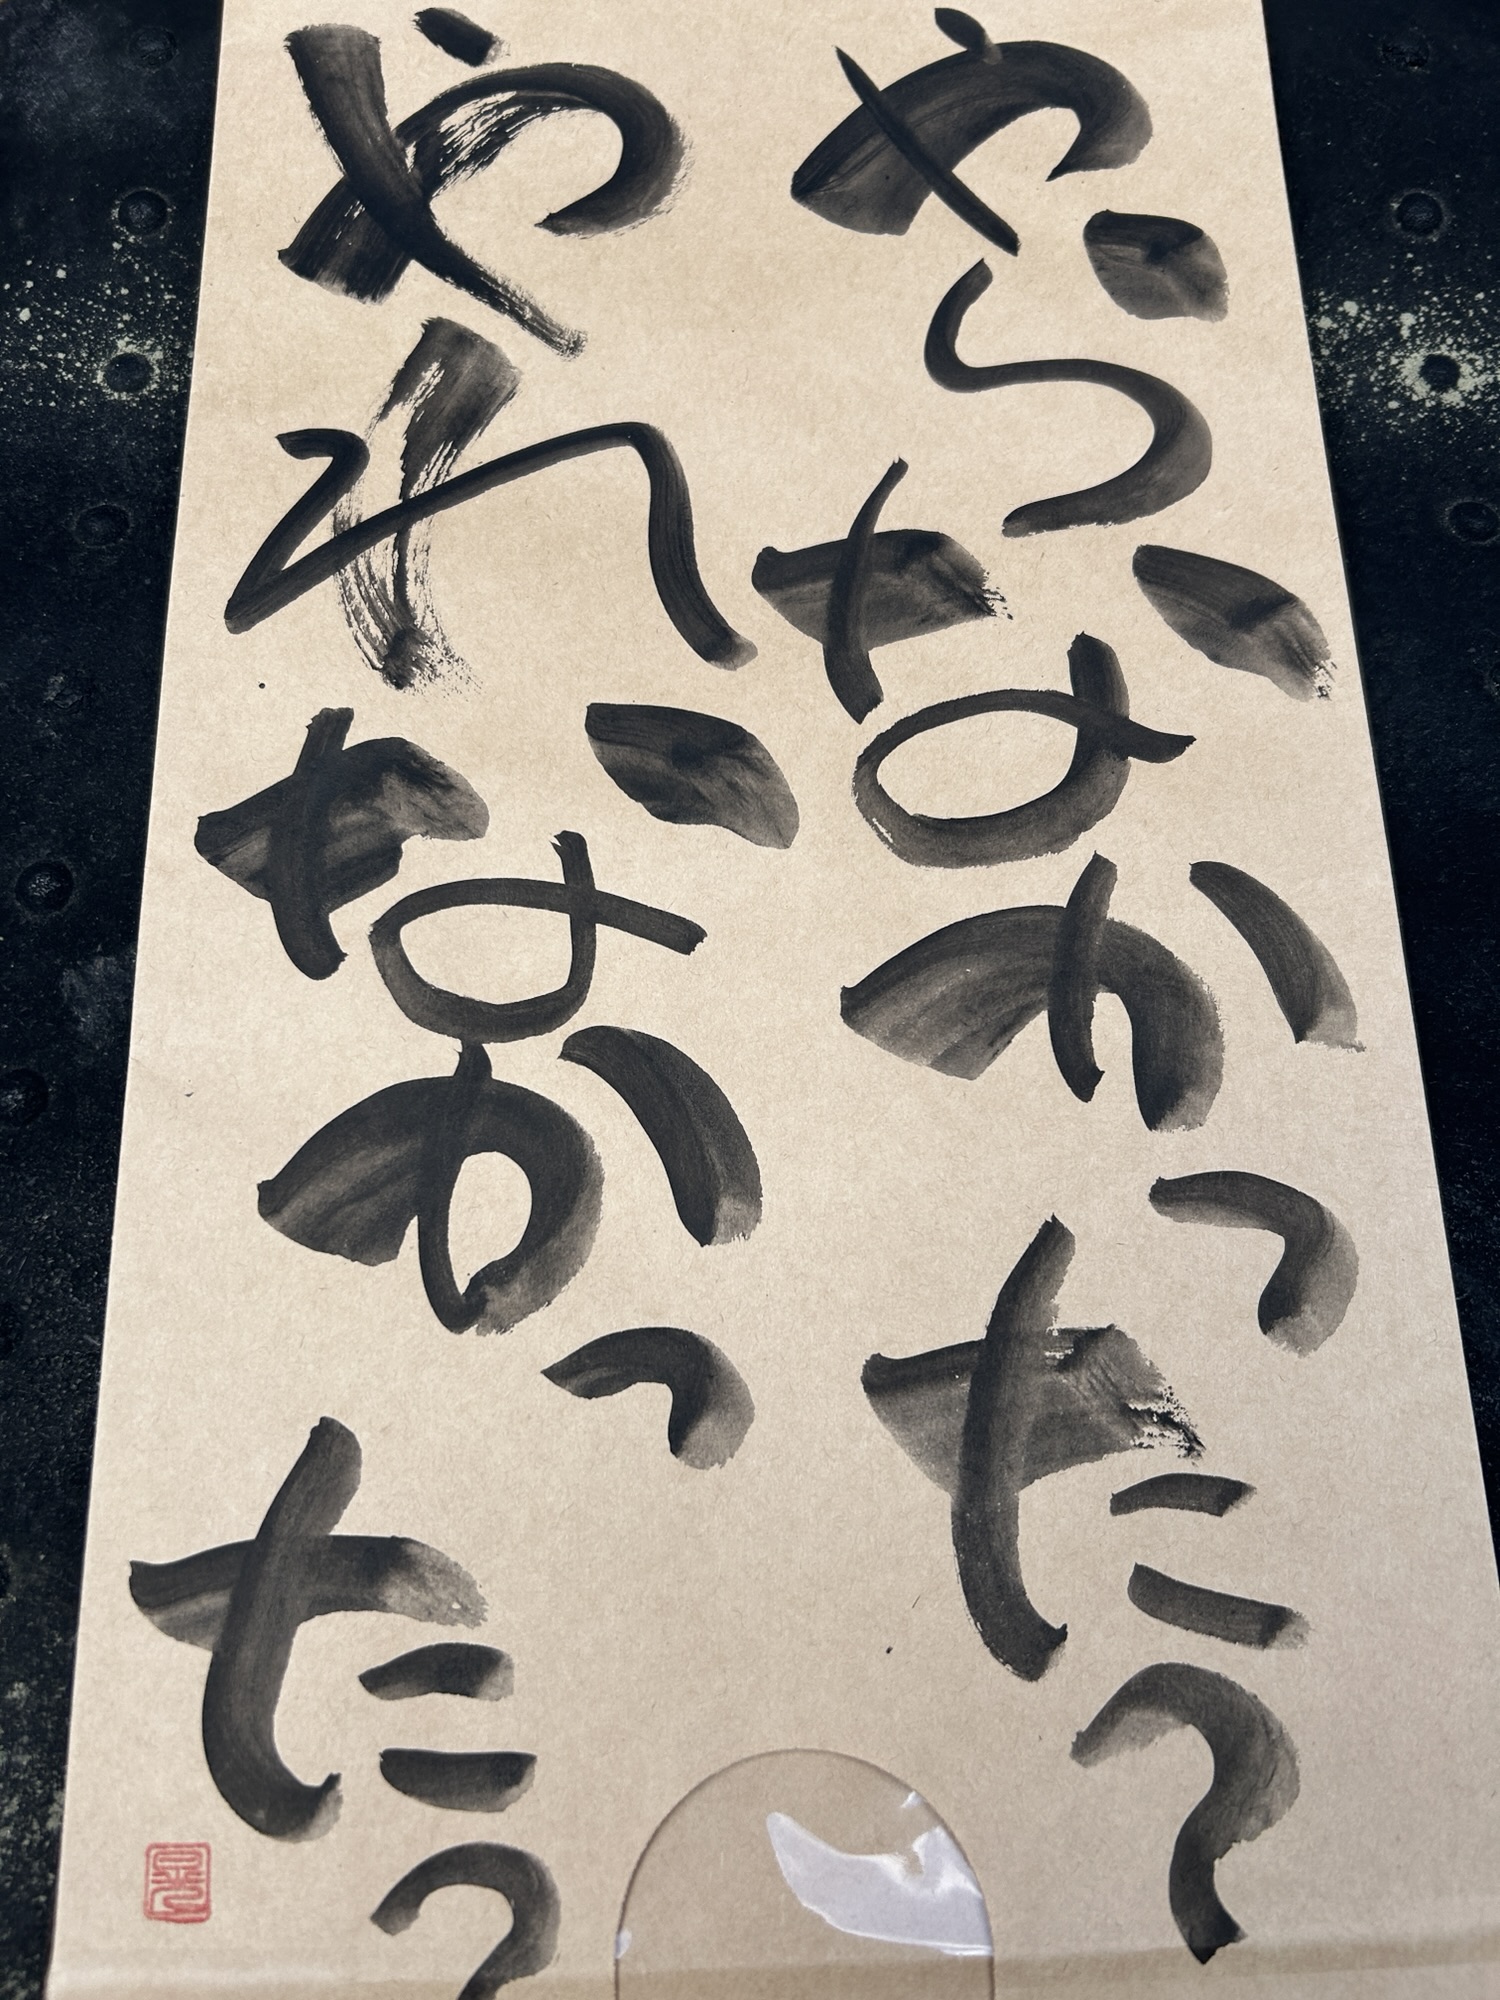 やらなかった？
やれなかった？